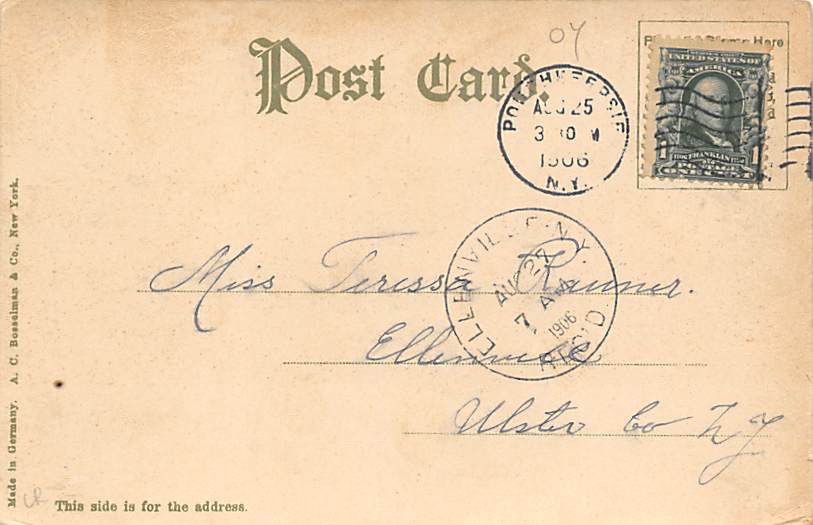 04
Post Card.
POUGHKEEPSIE
AUG 25
3 30 M
1906
N.Y.
Stamp Here
UNITED STATES OF
AMERICA
1 FRANKLIN 1
POSTAGE
ONE CENT
ELLENVILLE, N.Y.
AUG 27
7 AM
1906
REC'D
Miss Teressa Rauner.
Ellenville
Ulster Co N.Y
Made in Germany. A. C. Bosselman & Co., New York.
This side is for the address.